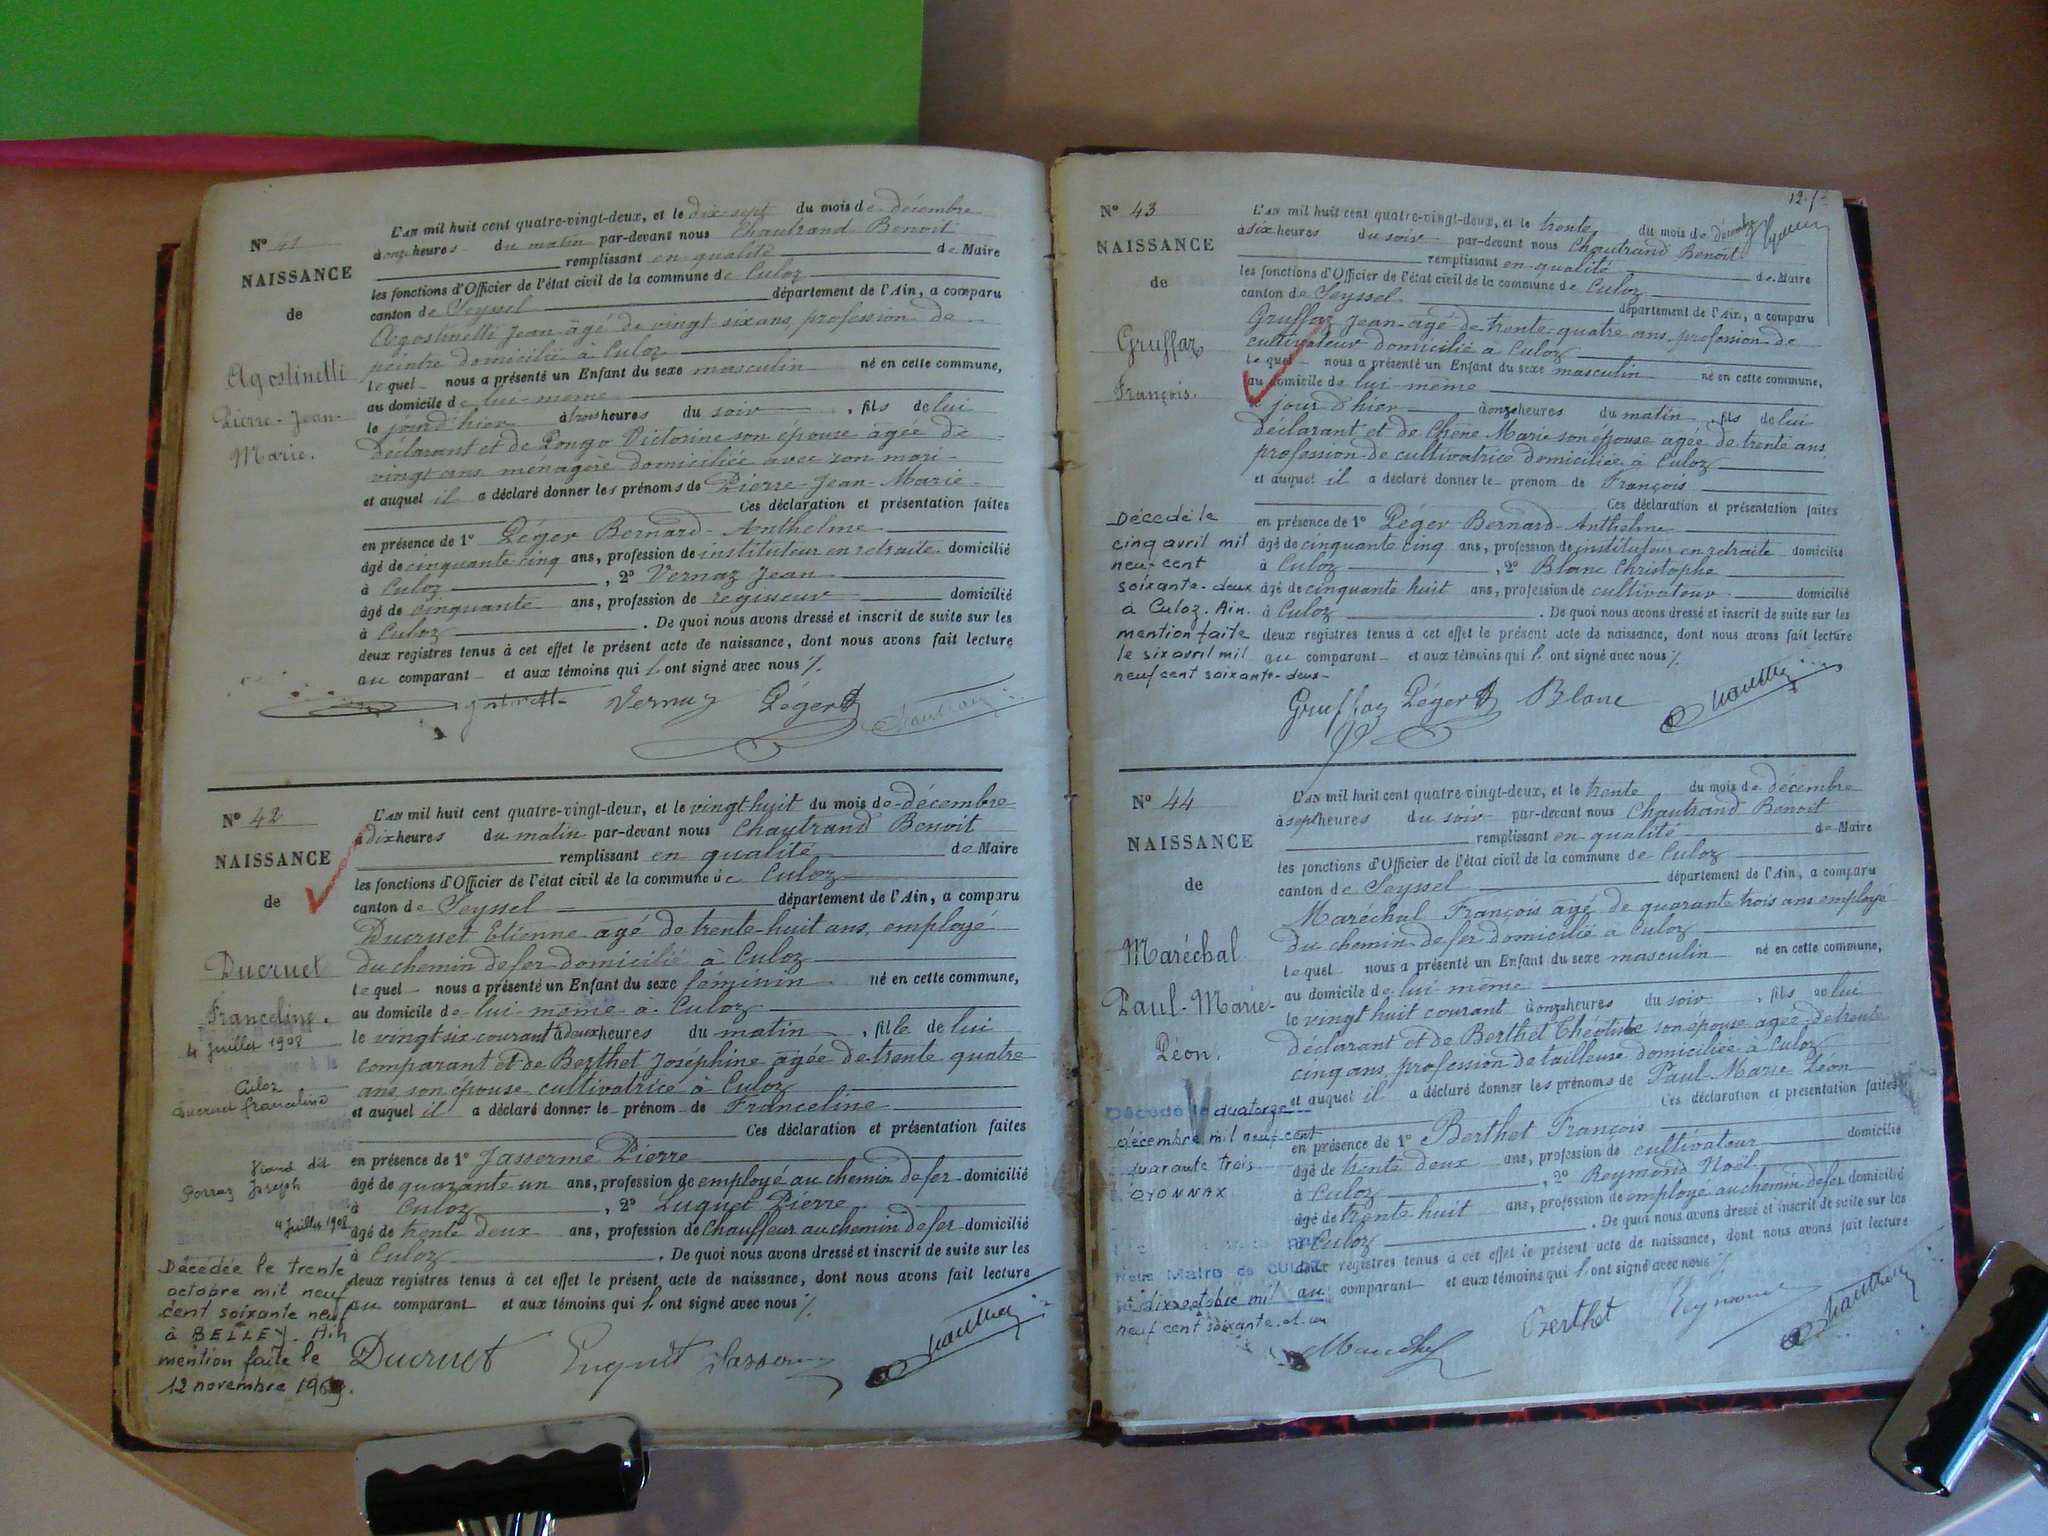 Nº 41
NAISSANCE
de
Agostinelli
Pierre-Jean-
Marie.
L'AN mil huit cent quatre-vingt-deux, et le dix-sept du mois de décembre
à onze heures du matin par-devant nous Chautrand Benoit
remplissant en qualité de Maire
les fonctions d'Officier de l'état civil de la commune de Culoz
canton de Seyssel département de l'Ain, a comparu
Agostinelli Jean âgé de vingt six ans, profession de
peintre domicilié à Culoz
lequel nous a présenté un Enfant du sexe masculin né en cette commune,
au domicile de lui-même
le jour d'hier à trois heures du soir, fils de lui
Déclarant et de Longo Victorine son épouse âgée de
vingt ans ménagère domiciliée avec son mari
et auquel il a déclaré donner les prénoms de Pierre-Jean-Marie
Ces déclaration et présentation faites
en présence de 1º Léger Bernard-Anthelme
âgé de cinquante cinq ans, profession de instituteur en retraite domicilié
à Culoz, 2º Vernaz Jean
âgé de cinquante ans, profession de régisseur domicilié
à Culoz. De quoi nous avons dressé et inscrit de suite sur les
deux registres tenus à cet effet le présent acte de naissance, dont nous avons fait lecture
au comparant et aux témoins qui l'ont signé avec nous
Vernaz Léger Chautrand
Nº 42
NAISSANCE
de
Ducruet
Franceline.
4 Juillet 1908
Culoz
Ducruet franceline
Joseph
4 Juillet 1908
Décédée le trente
octobre mil neuf
cent soixante neuf
à BELLEY. Ain
mention faite le
12 novembre 1969.
L'AN mil huit cent quatre-vingt-deux, et le vingt huit du mois de décembre
à dix heures du matin par-devant nous Chautrand Benoit
remplissant en qualité de Maire
les fonctions d'Officier de l'état civil de la commune de Culoz
canton de Seyssel département de l'Ain, a comparu
Ducruet Etienne âgé de trente-huit ans, employé
du chemin de fer domicilié à Culoz
lequel nous a présenté un Enfant du sexe féminin né en cette commune,
au domicile de lui même à Culoz
le vingt six courant à deux heures du matin, fille de lui
comparant et de Berthet Joséphine âgée de trente quatre
ans son épouse cultivatrice à Culoz
et auquel il a déclaré donner le prénom de Franceline
Ces déclaration et présentation faites
en présence de 1º Jasserme Pierre
âgé de quarante un ans, profession de employé au chemin de fer domicilié
à Culoz, 2º Luquet Pierre
âgé de trente deux ans, profession de Chauffeur au chemin de fer domicilié
à Culoz. De quoi nous avons dressé et inscrit de suite sur les
deux registres tenus à cet effet le présent acte de naissance, dont nous avons fait lecture
au comparant et aux témoins qui l'ont signé avec nous
Ducruet Luquet Chautrand
Nº 43
NAISSANCE
de
Gruffaz
François.
Décédé le
cinq avril mil
neuf cent
soixante-deux
à Culoz. Ain.
mention faite
le six avril mil
neuf cent soixante-deux-
L'AN mil huit cent quatre-vingt-deux, et le trente du mois de décembre
à six heures du soir par-devant nous Chautrand Benoit
remplissant en qualité de Maire
les fonctions d'Officier de l'état civil de la commune de Culoz
canton de Seyssel département de l'Ain, a comparu
Gruffaz Jean âgé de trente-quatre ans, profession de
cultivateur domicilié à Culoz
lequel nous a présenté un Enfant du sexe masculin né en cette commune,
au domicile de lui-même
le jour d'hier à onze heures du matin, fils de lui
déclarant et de Chêne Marie son épouse âgée de trente ans
profession de cultivatrice domiciliée à Culoz
et auquel il a déclaré donner le prénom de François
Ces déclaration et présentation faites
en présence de 1º Léger Bernard-Anthelme
âgé de cinquante cinq ans, profession de instituteur en retraite domicilié
à Culoz, 2º Blanc Christophe
âgé de cinquante huit ans, profession de cultivateur domicilié
à Culoz. De quoi nous avons dressé et inscrit de suite sur les
deux registres tenus à cet effet le présent acte de naissance, dont nous avons fait lecture
au comparant et aux témoins qui l'ont signé avec nous
Gruffaz Léger Blanc Chautrand
Nº 44
NAISSANCE
de
Maréchal
Paul-Marie-
Léon.
Décédé le quatorze
décembre mil neuf cent
quarante trois
OYONNAX
Maire de CULOZ
dix octobre mil
neuf cent soixante et un
L'AN mil huit cent quatre-vingt-deux, et le trente du mois de décembre
à sept heures du soir par-devant nous Chautrand Benoit
remplissant en qualité de Maire
les fonctions d'Officier de l'état civil de la commune de Culoz
canton de Seyssel département de l'Ain, a comparu
Maréchal François âgé de quarante trois ans employé
du chemin de fer domicilié à Culoz
lequel nous a présenté un Enfant du sexe masculin né en cette commune,
au domicile de lui même
le vingt huit courant à onze heures du soir, fils de lui
déclarant et de Berthet Théotiste son épouse âgée de trente
cinq ans, profession de tailleuse domiciliée à Culoz
et auquel il a déclaré donner les prénoms de Paul Marie Léon
Ces déclaration et présentation faites
en présence de 1º Berthet François
âgé de trente deux ans, profession de cultivateur domicilié
à Culoz, 2º Reymond Noël
âgé de trente huit ans, profession de employé au chemin de fer domicilié
à Culoz. De quoi nous avons dressé et inscrit de suite sur les
deux registres tenus à cet effet le présent acte de naissance, dont nous avons fait lecture
au comparant et aux témoins qui l'ont signé avec nous
Berthet Reymond Chautrand